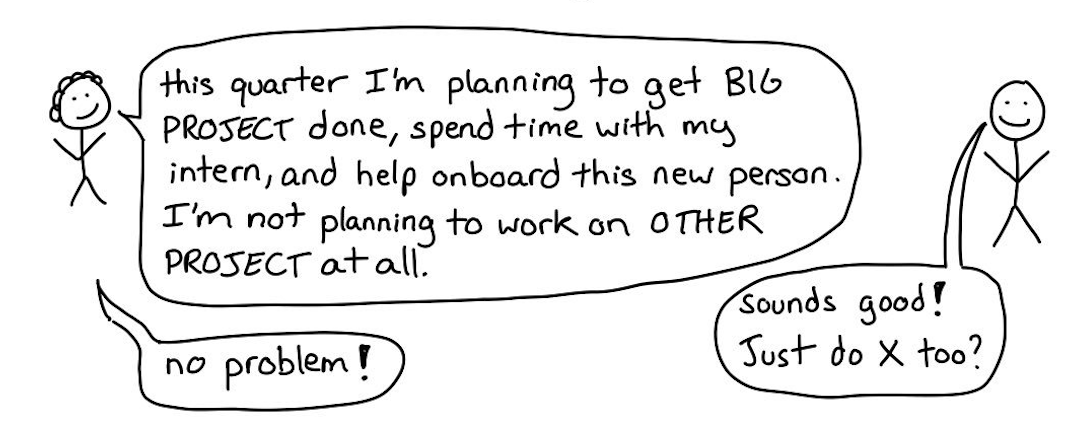 this quarter I'm planning to get BIG
PROJECT done, spend time with my
intern, and help onboard this new person.
I'm not planning to work on OTHER
PROJECT at all.
sounds good!
Just do X too?
no problem!